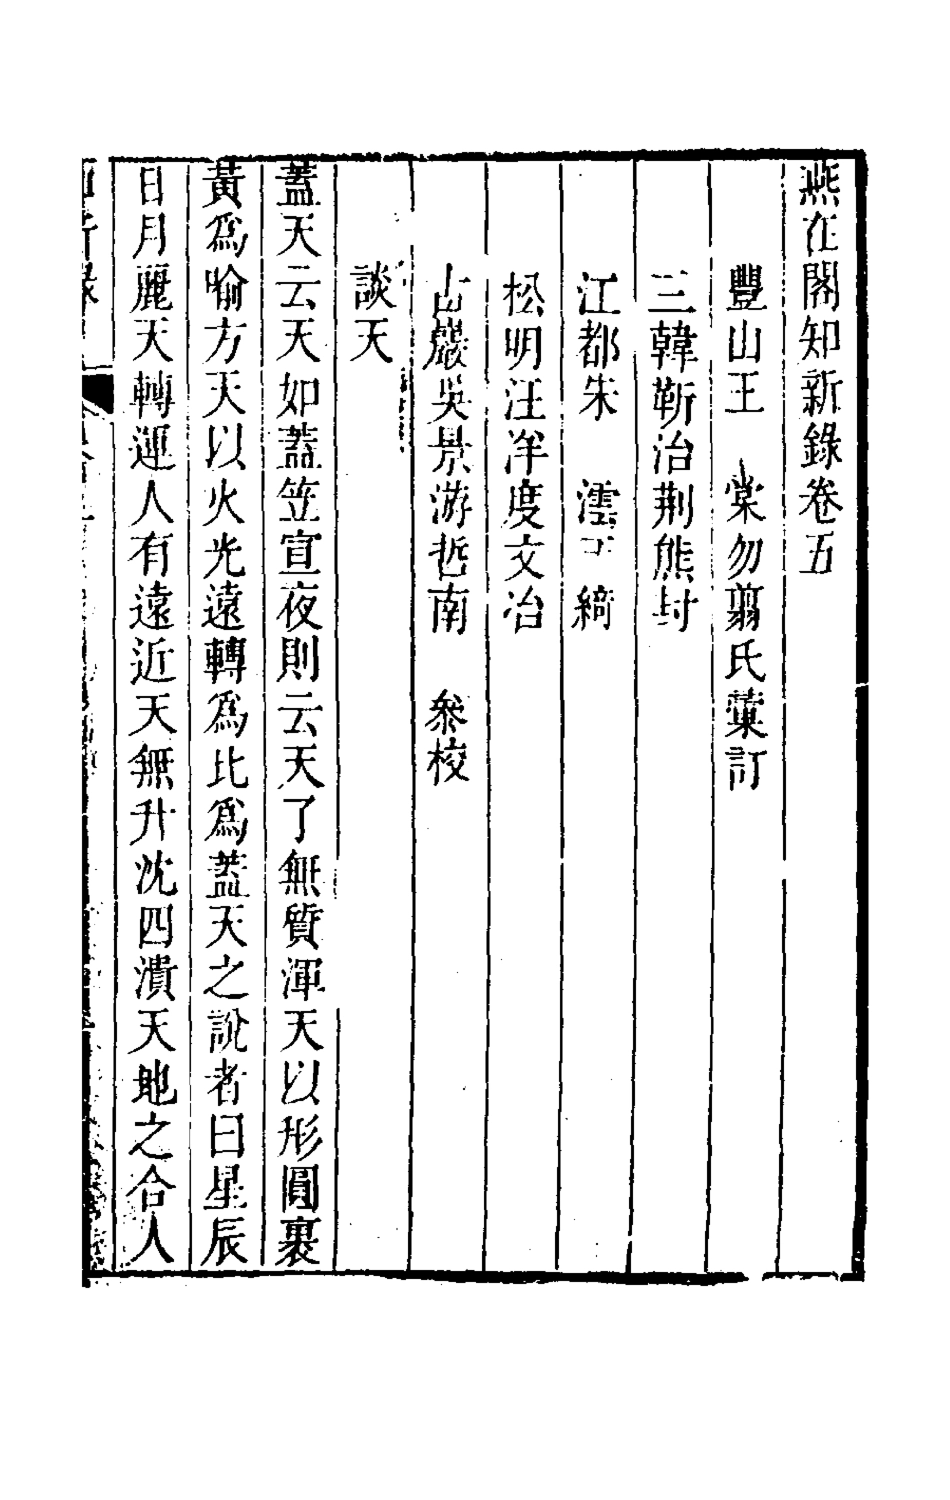 燕在閣知新錄卷五
豐山王　棠勿翦氏彙訂
三韓靳治荆熊封
江都朱　澐　綺
松明汪洋度文冶
古巖吳景游哲南　叅校
談天
蓋天云天如蓋笠宣夜則云天了無質渾天以形圓裹
黃爲喻方天以火光遠轉爲比爲蓋天之說者曰星辰
日月麗天轉運人有遠近天無升沈四潰天地之合人
知新錄